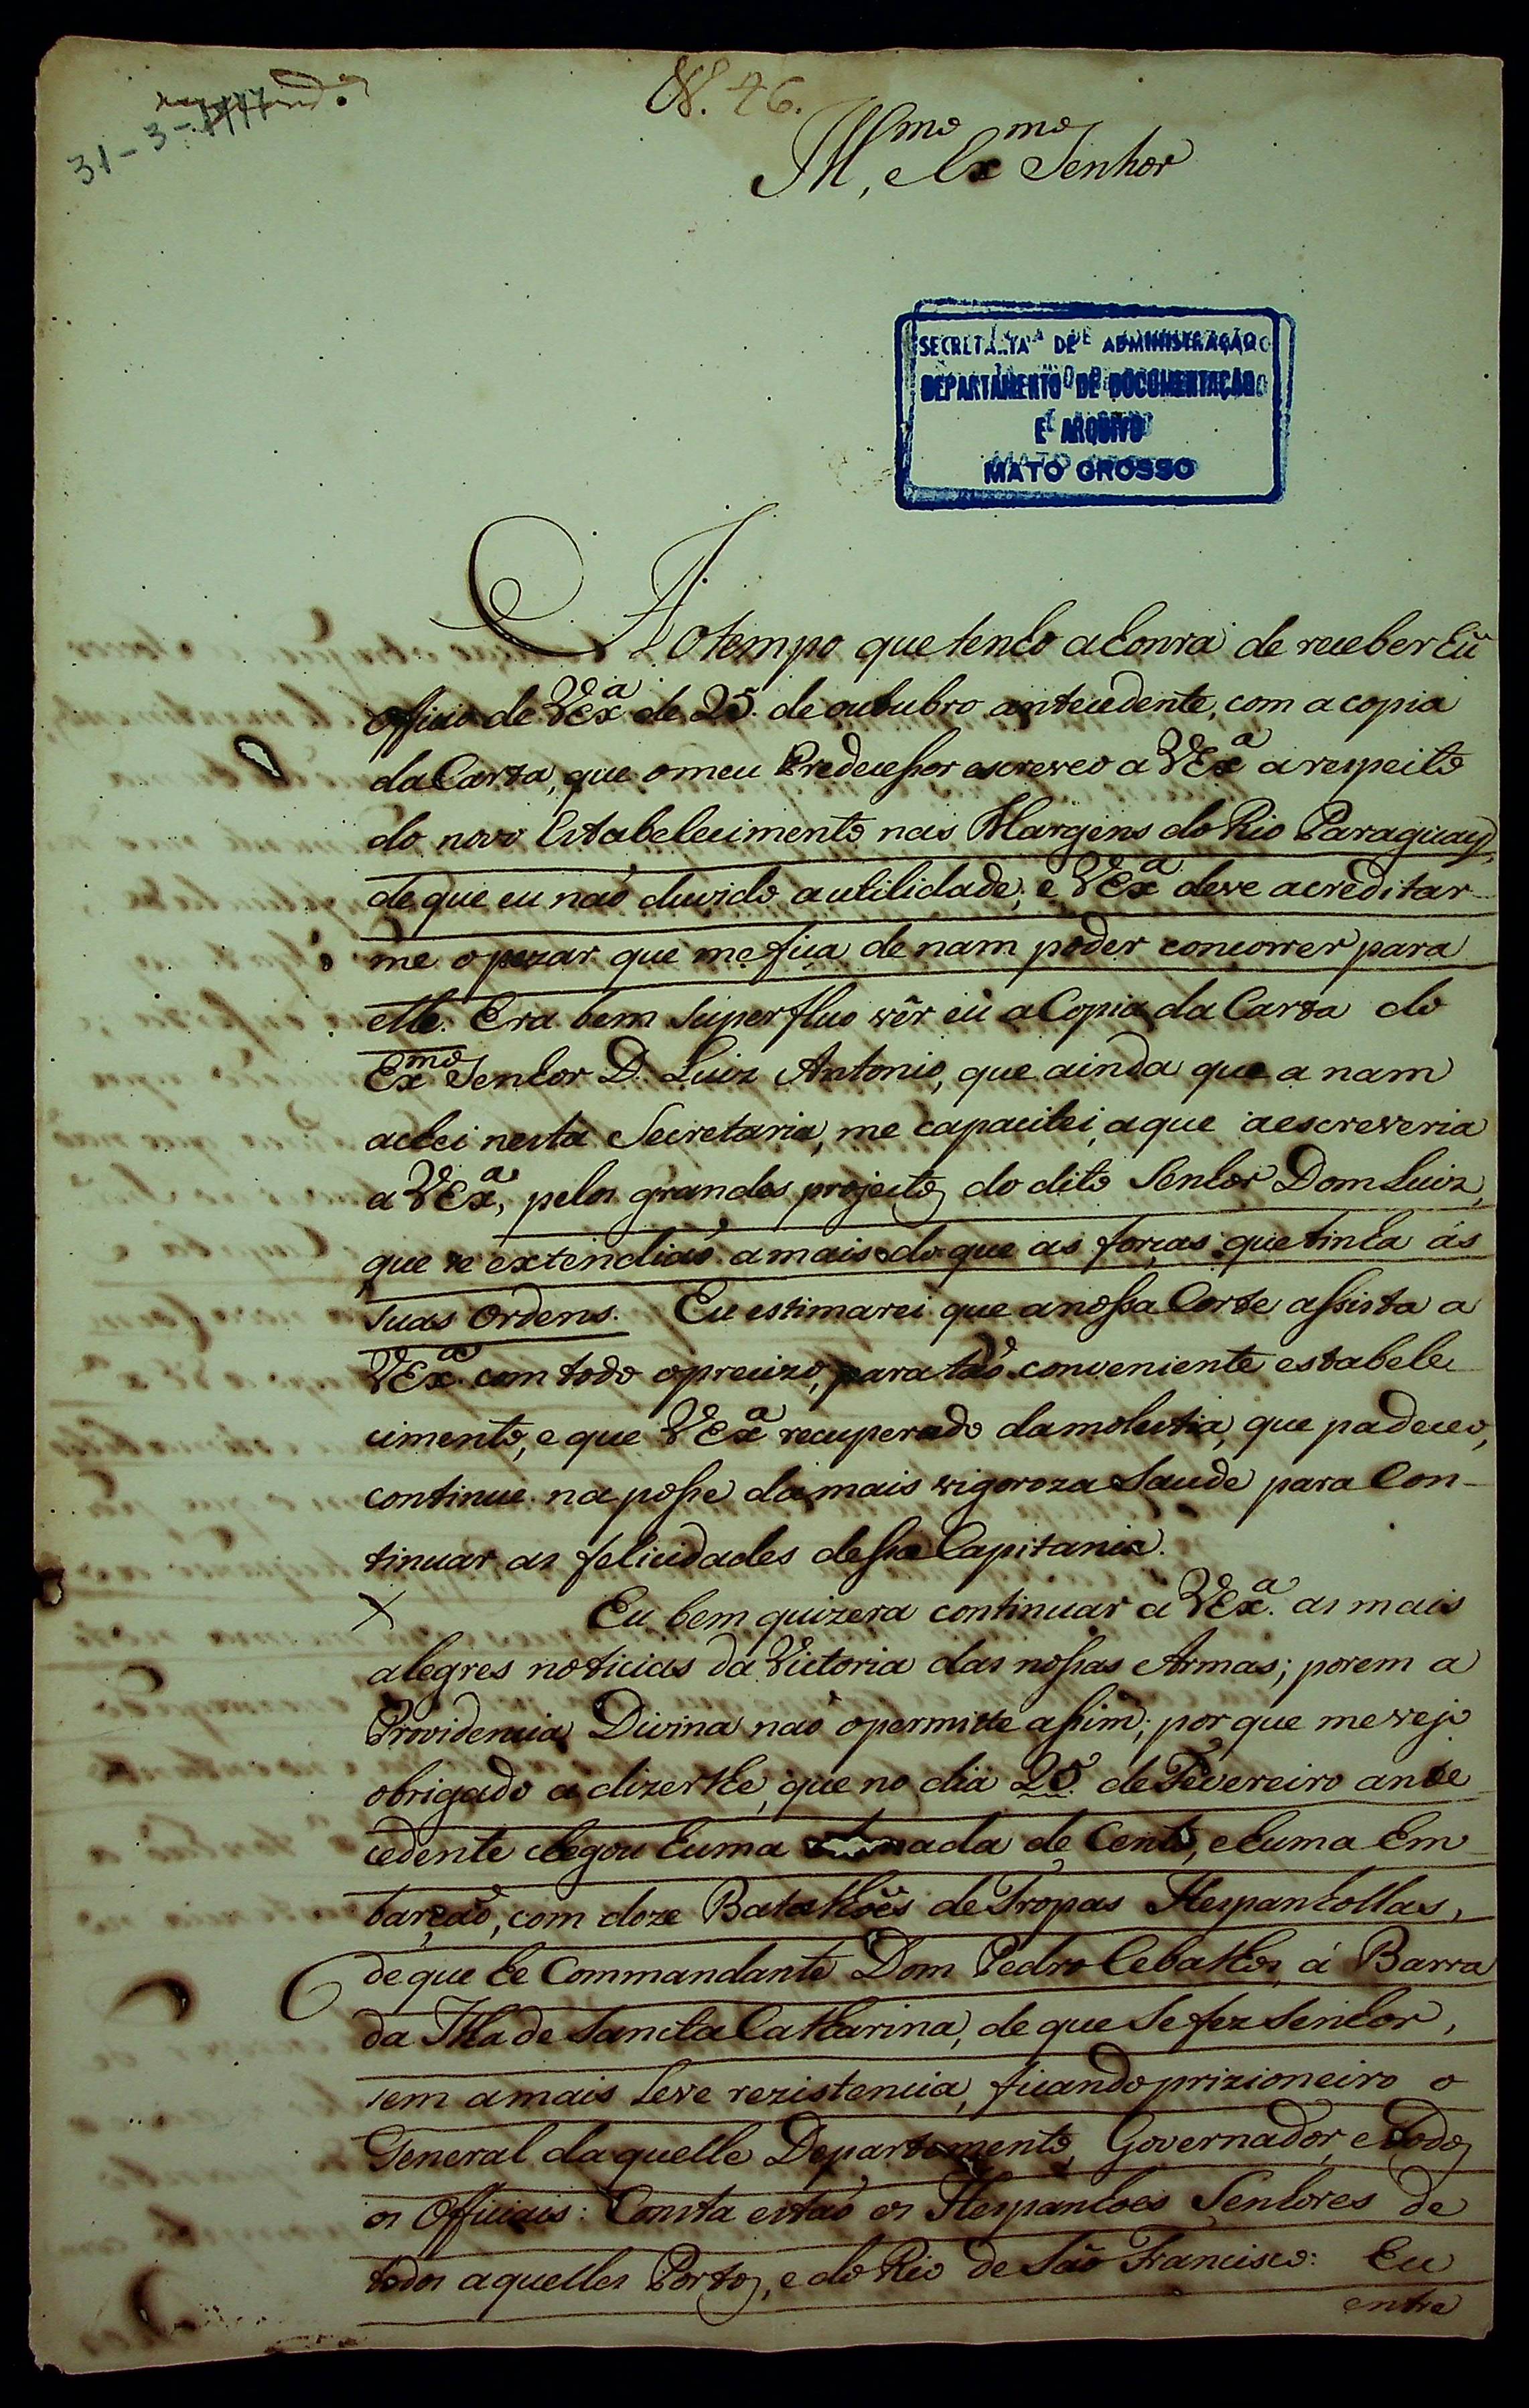 N. 46.
31-3-1777
Ill.mo, e Ex.mo Senhor
SECRETARIA DE ADMINISTRAÇÃO
DEPARTAMENTO DE DOCUMENTAÇÃO
E ARQUIVO
MATO GROSSO
Ao tempo que tenho a honra de receber hũ
officio de VEx.a de 25. de outubro antecedente, com a copia
da Carta, que o meu Predecessor escreveo a VEx.a a respeito
do novo Estabelecimento nas Margens do Rio Paraguay,
de que eu não duvido a utilidade; e VEx.a deve acreditar-
me o pezar que me fica de nam poder concorrer para
elle. Era bem superfluo vêr eu a Copia da Carta do
Ex.mo Senhor D. Luiz Antonio, que ainda que a nam
achei nesta Secretaria, me capacitei, a que a escreveria
a VEx.a, pelos grandes projectos do dito Senhor Dom Luiz,
que se extendiaõ a mais do que as forças que tinha ás
suas Ordens. Eu estimarei que a nossa Corte assista a
VEx.a com todo o precizo, para taõ conveniente estabele
cimento, e que VEx.a recuperado da molestia, que padeceo,
continue na posse da mais vigoroza Saude para Con-
tinuar as felicidades dessa Capitania.
X Eu bem quizera continuar a VEx.a as mais
alegres noticias da Victoria das nossas Armas; porem a
Providencia Divina naõ o permitte assim; por que me vejo
obrigado a dizerlhe, que no dia 25 de Fevereiro ante
cedente chegou huma Armada de Cento, e huma Em
barcaõ, com doze Batalhoẽs de Tropas Hespanhollas,
de que he Commandante Dom Pedro Cebalhos, á Barra
da Ilha de Sancta Catharina, de que Se fez Senhor,
sem a mais Leve rezistencia, ficando prizioneiro o
General daquelle Departamento, Governador, e todos
os Officiais: Consta estaõ os Hespanhoes Senhores de
todos aquelles Portos, e do Rio de São Francisco: Eu
entre